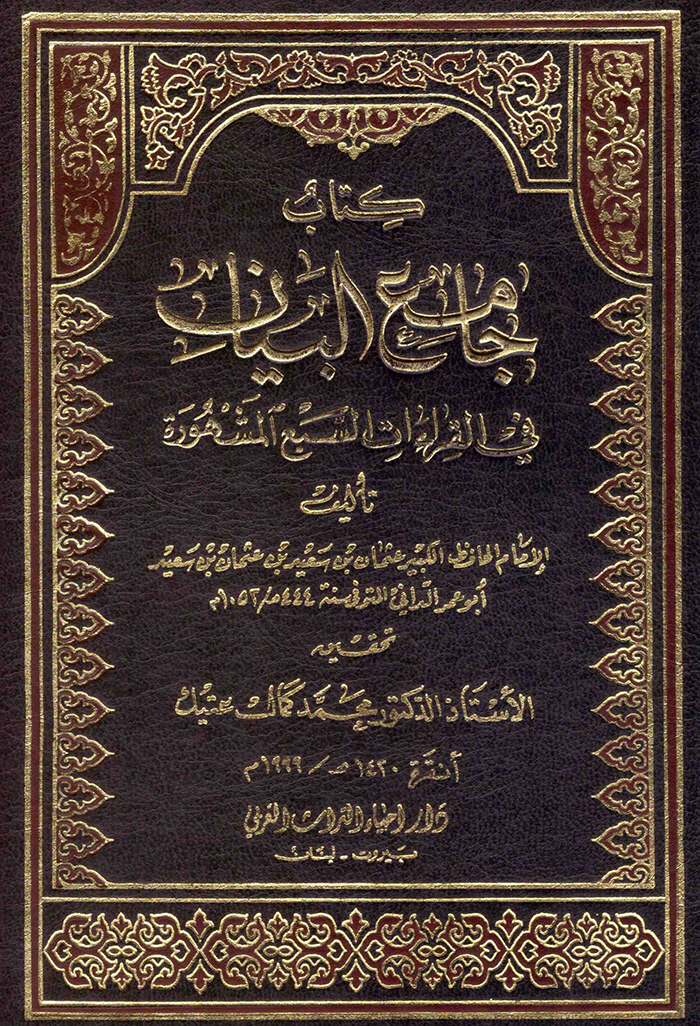 كتاب
جامع البيان
في القراءات السبع المشهورة
تأليف
الإمام الحافظ الكبير عثمان بن سعيد بن عثمان بن سعيد
أبو عمرو الداني المتوفى سنة ٤٤٤هـ/١٠٥٢م
تحقيق
الأستاذ الدكتور محمد كمال عتيك
أنقرة ١٤٢٠هـ/١٩٩٩م
دار احياء التراث العربي
بيروت - لبنان